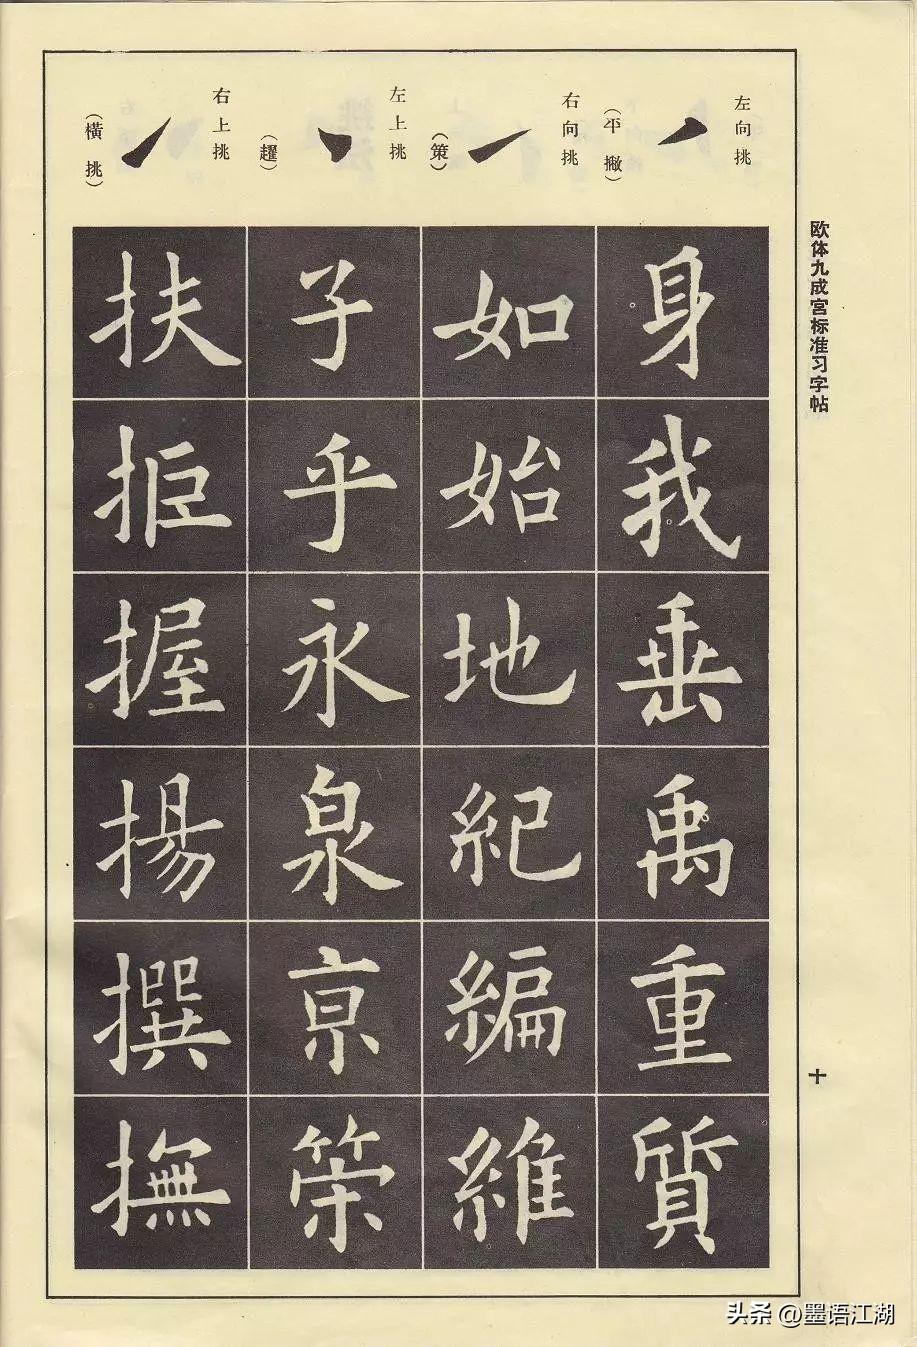 欧体九成宫标准习字帖
十
左向挑
（平撇）
右向挑
（策）
左上挑
（趯）
右上挑
（橫挑）
身我垂禹重質
如始地紀編維
子乎永泉亰策
扶拒握揚撰撫
头条 @墨语江湖